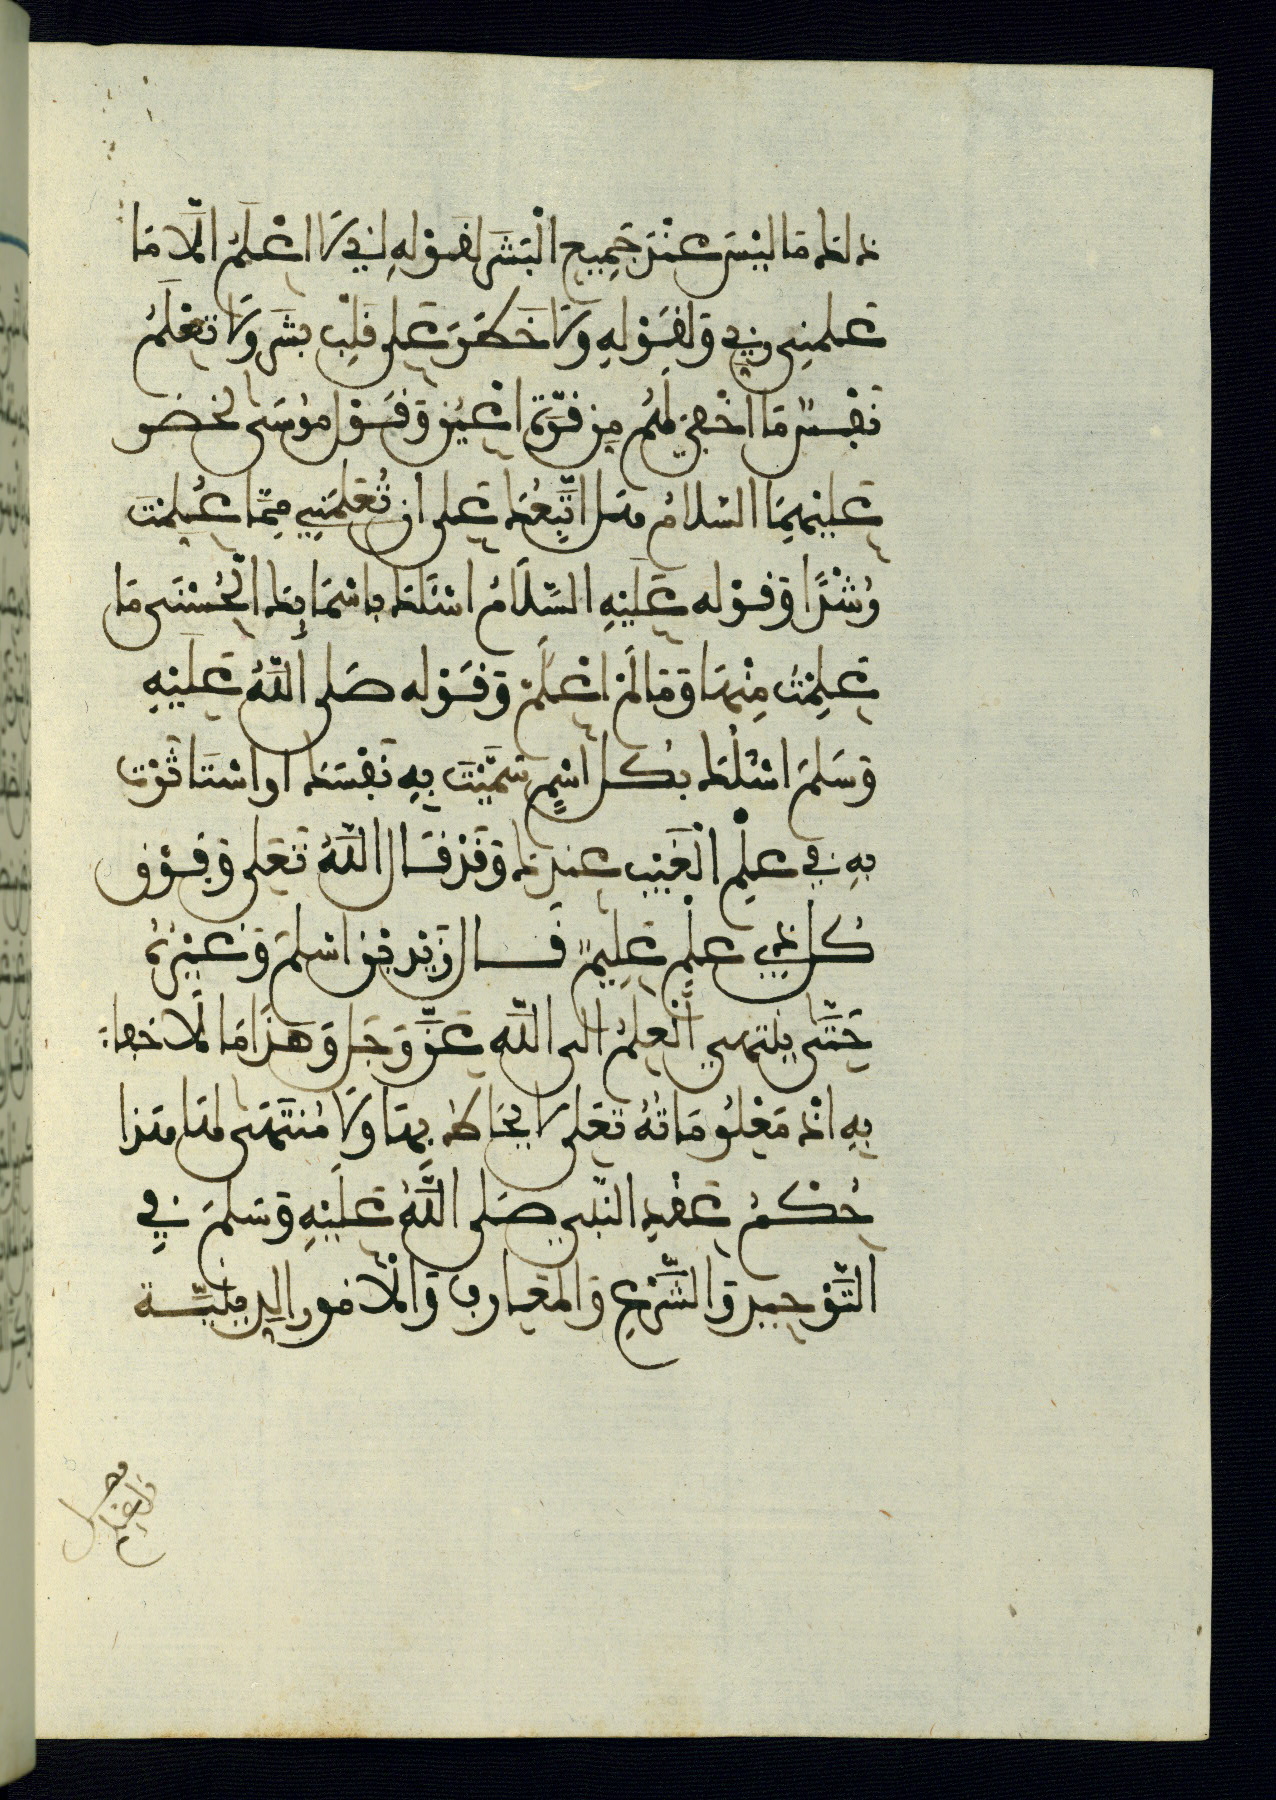 ذلك ما ليس عند جميع البشر لقوله إني لا أعلم إلا ما
علمني ربي ولقوله ولا خطر على قلب بشر ولا تعلم
نفس ما أخفي لهم من قرة أعين وقول موسى للخضر
عليهما السلام هل اتبعك على أن تعلمني مما علمت
رشدا وقوله عليه السلام اسئلك باسمائك الحسنى ما
علمت منها وما لم اعلم وقوله صلى الله عليه
وسلم اسئلك بكل اسم سميت به نفسك او استاثرت
به في علم الغيب عندك وقد قال الله تعلى وفوق
كل ذي علم عليم قال زيد بن اسلم وغيره
حتى ينتهي العلم الى الله عز وجل وهذا ما لا خفاء
به اذ معلوماته تعلى لا يحاط بها ولا منتهى لها هذا
حكم عقد النبي صلى الله عليه وسلم في
التوحيد والشرع والمعارف والامور الدينية
فصل